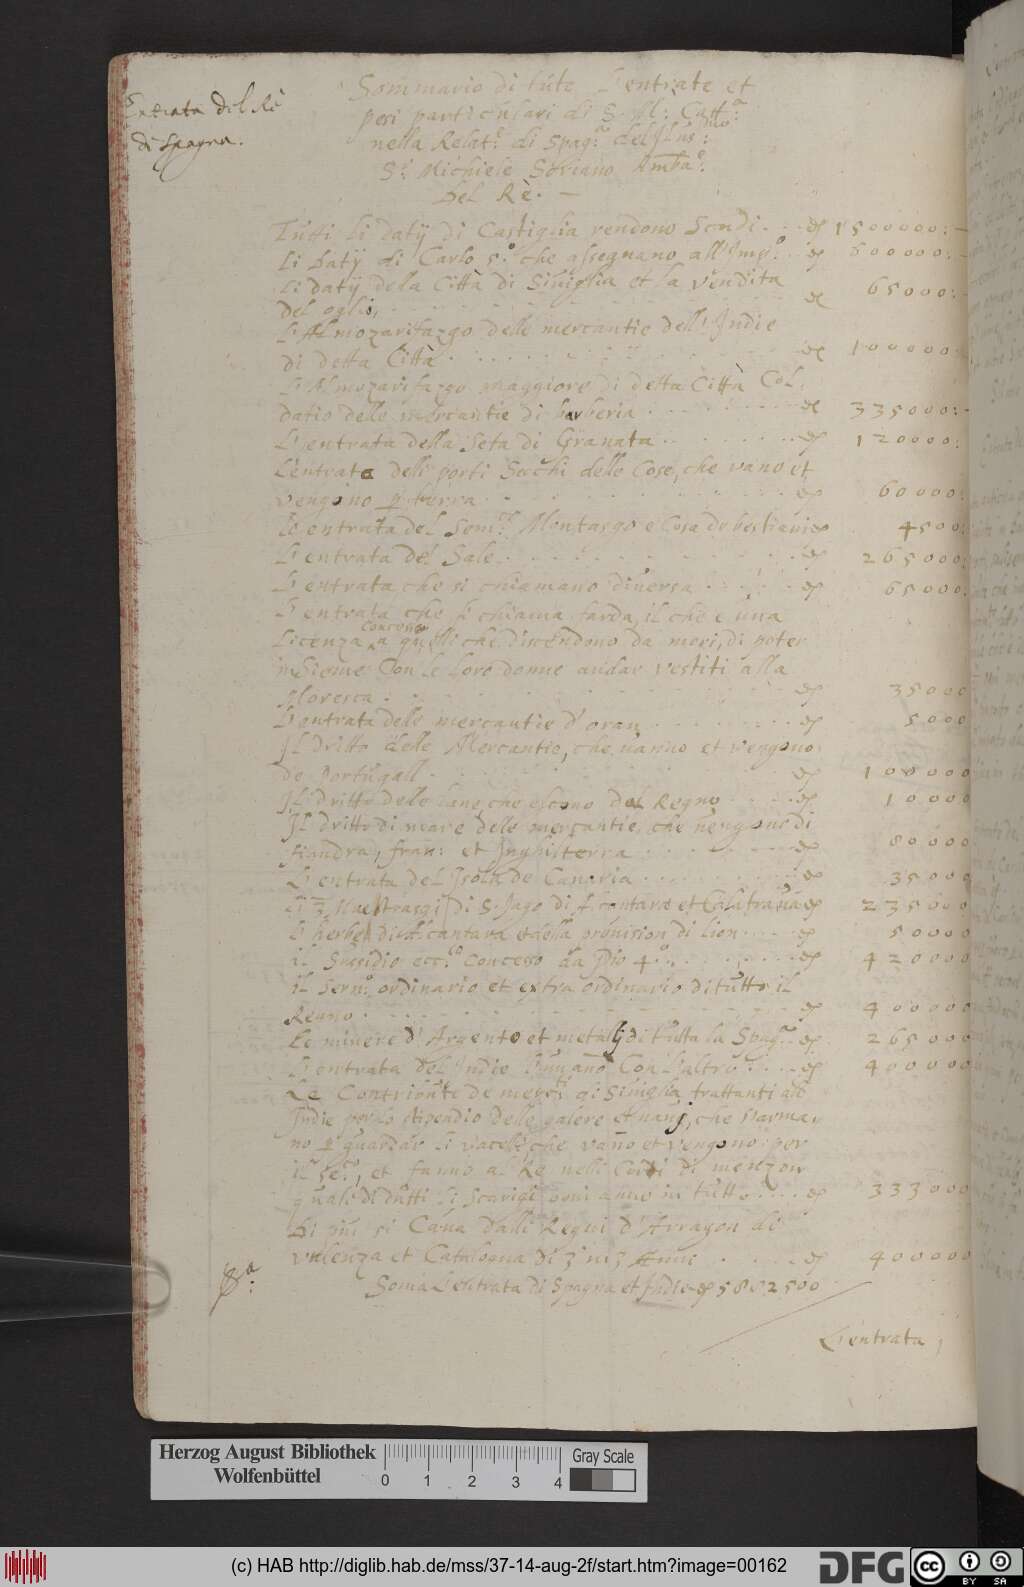 Entrata del Rè
di Spagna.
Sommario di tute L'entrate et
pesi particulari di S. M. Catt.ca
nella Relat.e di Spag.a del Illus.mo
S.r Michiele Soriano Amba.r
del Rè. —
Tutti li datij di Castiglia rendono Scudi . . . 1500000:—
Li datij di Carlo 5.o che assegnano all'Imp.o . . 600000:—
Li datij dela Città di Siviglia et la vendita
del oglio, . . . 65000:
L'Almozarifazgo delle mercantie dell'Indie
di detta Città . . . 100000:
L'Almozarifazgo maggiore di detta Città Col
datio delle mercantie di barberia . . . 335000:-
L'entrata della Seta di Granata . . . 120000:
L'entrata delli porti Secchi delle Cose, che vano et
vengono p terra . . . 60000:
Le entrata del Montasgo e Cosa de bestiami 4500:
L'entrata del Sale . . . 265000:
L'entrata che si chiamano diversa . . . 65000:
L'entrata che si chiama farda, il che e una
Licenza concessa a quelli che discendono da mori, di poter
insieme Con le loro donne andar vestiti alla
Moresca . . . 35000
L'entrata delle mercantie d'oran . . . 5000
Il dritto delle Mercantie, che vanno et vengono
de Portugall . . . 100000
Il dritto dele lane che escono del Regno . . . 10000
Il dritto di mare dele mercantie che vengono di
fiandra, fran: et Inghisterra . . . 80000
L'entrata del Isola de Canaria . . . 35000
Li 3 Maestrasgi di S. Jago di et Calatrava 235000
L'herbe di Alcantara et della provision di lion . . . 50000
il Sussidio ecc.o Concesso da Pio 4.o . . . 420000
il Serv.o ordinario et extraordinario di tutto il
Regno . . . 400000
Le minere d'Argento et metalij di tutta la Spag.a 265000
L'entrata del Indie l'un anno Con l'altro . . . 400000
Le Contributione de merc.ti di Siviglia trattanti all
Indie per lo stipendio delle galere et navi, che s'arma-
no p guardar li vacelli che vano et vengono per
il et fanno al Re nelli
quali di dutti li Scarigi ogni anno in tutto . . . 333000
Di piu si Cava dalli Regni d'Arragon di
valenza et Catalogna di 3 in 3 Anni . . . 400000
Soma L'entrata di Spagna et Indie 5802500
L'entrata
Herzog August Bibliothek
Wolfenbüttel
0 1 2 3 4
Gray Scale
(c) HAB http://diglib.hab.de/mss/37-14-aug-2f/start.htm?image=00162
DFG
cc
BY SA